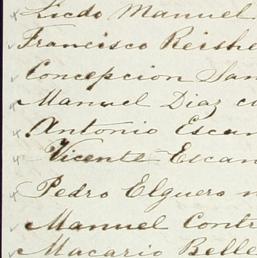 Licdo Manuel
Francisco Reishe
Concepcion San
Manuel Diaz co
Antonio Escan
Vicente Escan
Pedro Elguero n
Manuel Contr
Macario Belle